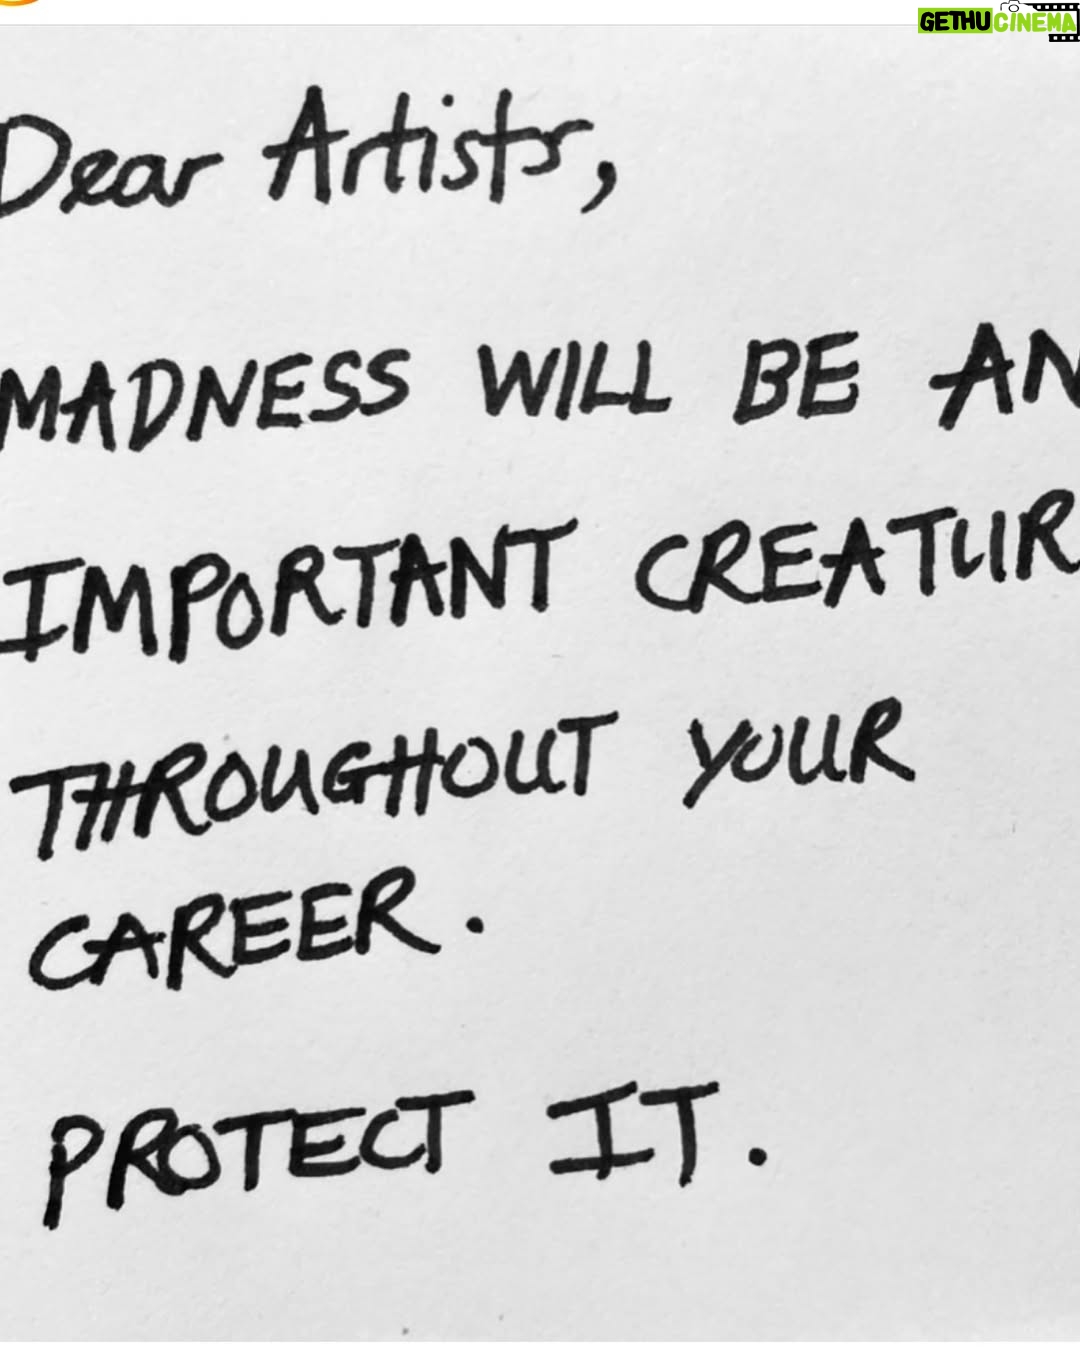 GETHUCINEMA
Dear Artists,
MADNESS WILL BE AN
IMPORTANT CREATUR
THROUGHOUT YOUR
CAREER.
PROTECT IT.